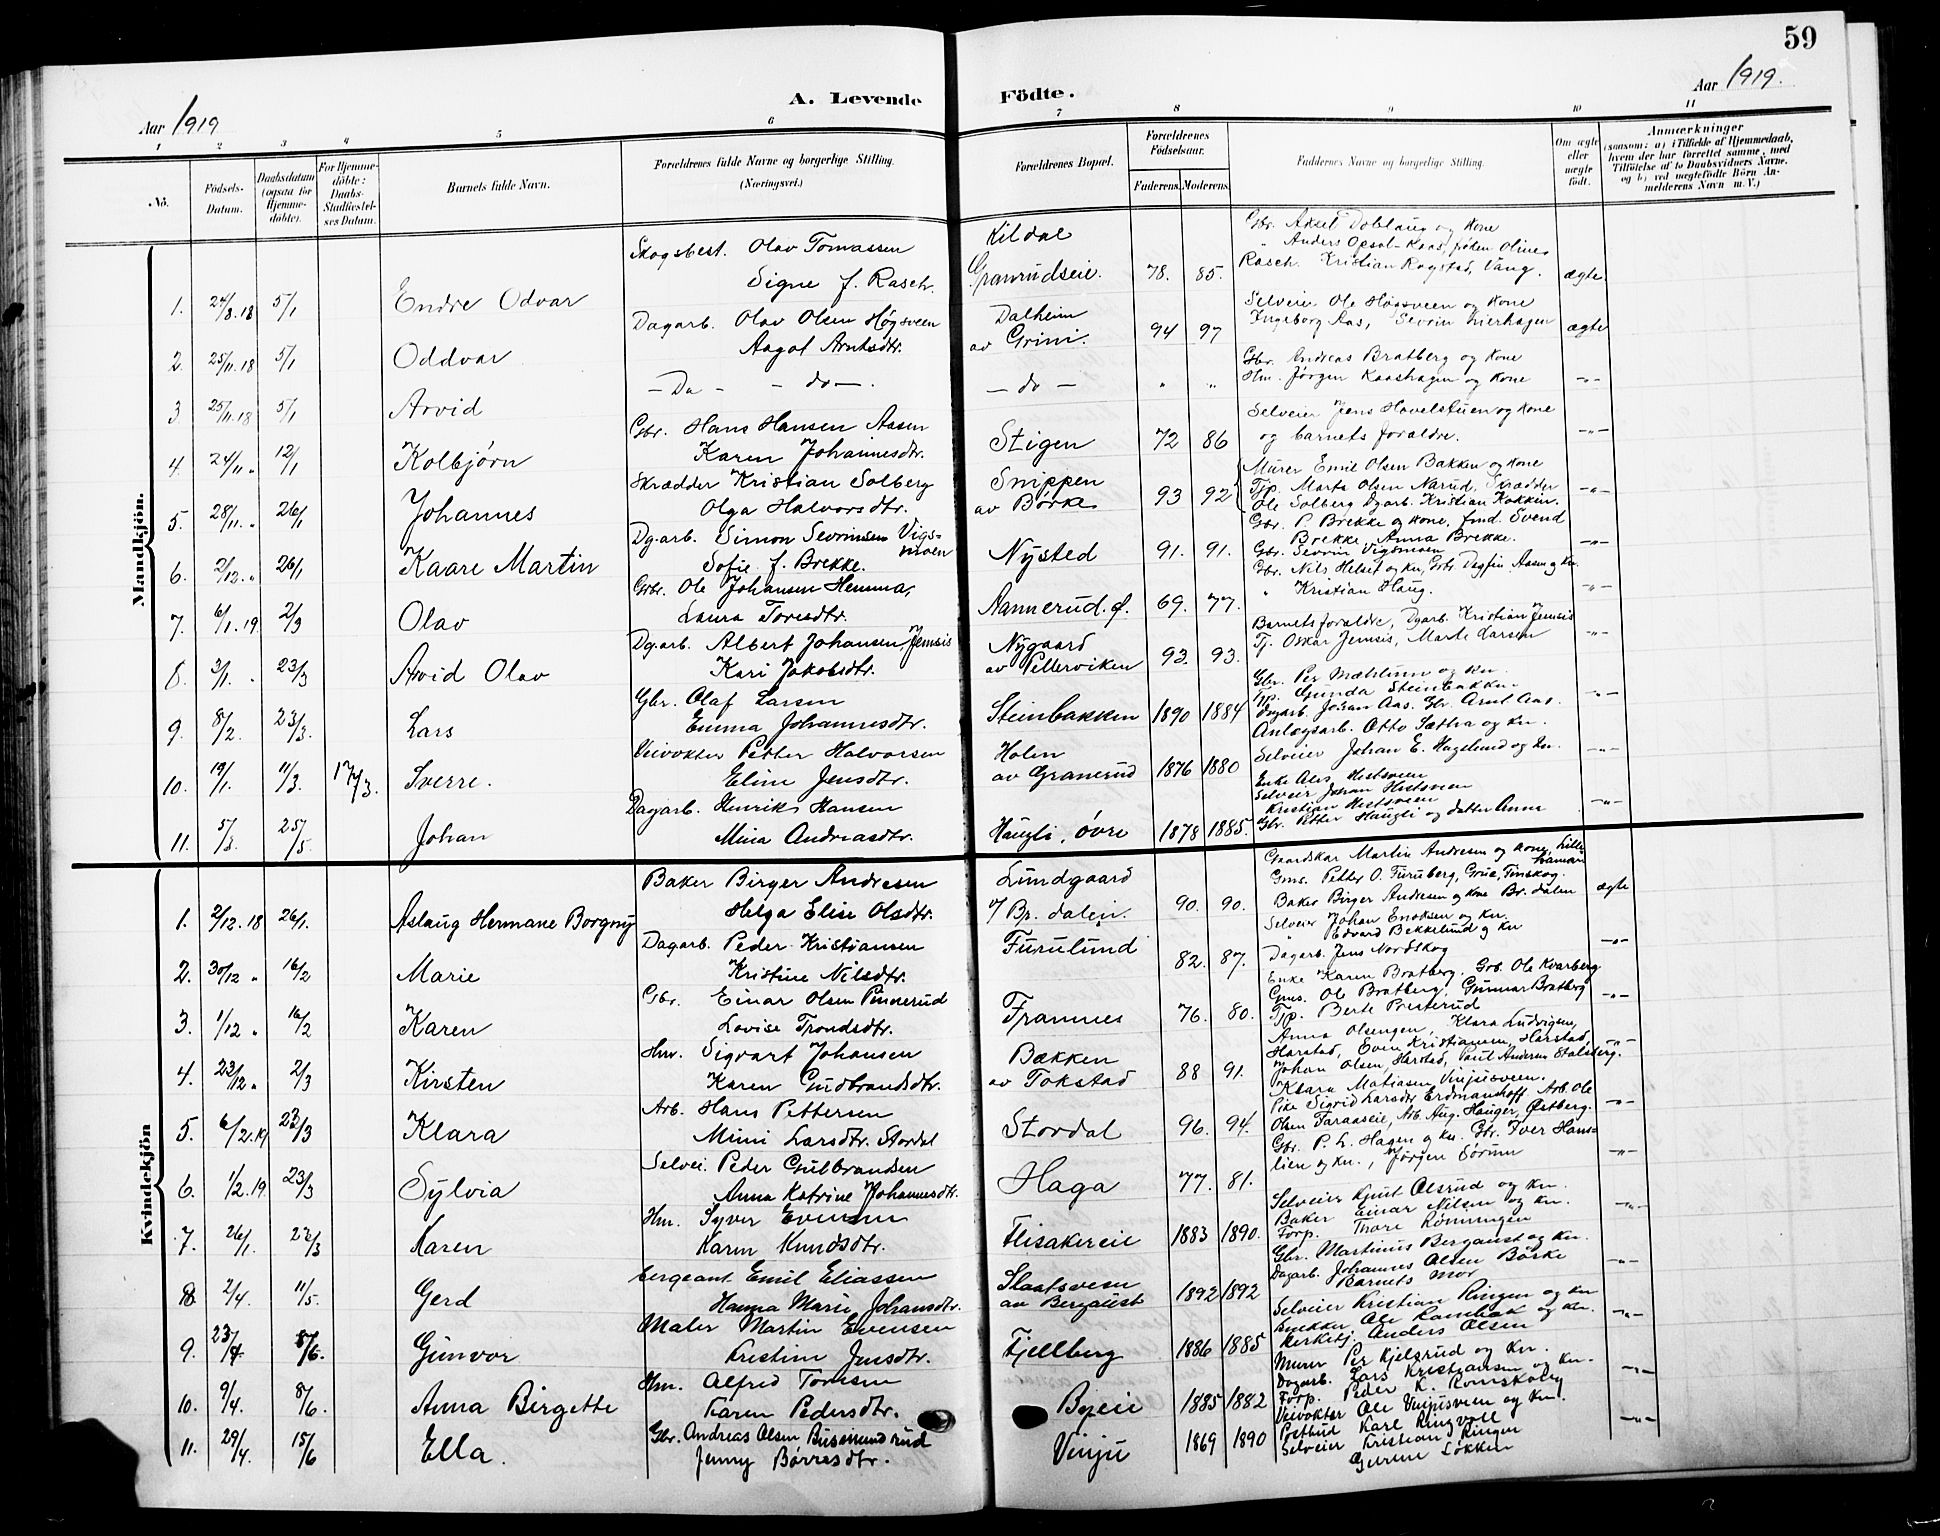 59
Aar 1919
A. Levende Födte.
Aar 1919.
1 2 3 4 5 6 7 8 9 10 11
No.
Födsels-Datum.
Daabsdatum (ogsaa for Hjemme-döbte).
For Hjemme-döbte: Daabs-Stadfæstel-ses Datum.
Barnets fulde Navn.
Forældrenes fulde Navne og borgerlige Stilling. (Næringsvei.)
Forældrenes Bopæl.
Forældrenes Födselsaar.
Faderens. Moderens.
Faddernes Navne og borgerlige Stilling.
Om ægte eller uægte födt.
Anmærkninger
(saasom: a) i Tilfælde af Hjemmedaab,
hvem der har forrettet samme, med
Tilföielse af to Daabsvidners Navne,
og b) ved uægtefödte Börn An-
melderens Navn m. V.)
Mandkjön.
Skogsbest. Olav Tomassen Kildal Gbr. Aksel Doblaug og Kone
" Anders Opsal-Kaas, frøken Olines
1. 24/8.18 5/1 Endre Odvar Signe f. Rasch. Granrudseie. 78. 85. Rasch. Kristian Rogstad, Vang. ægte
Dagarb. Olav Olsen Høgsveen Dalheim Selveier Ole Høgsveen og Kone
2. 25/11.18 5/1 Oddvar Aagot Arntsdtr. av Grini. 94 97 Ingeborg Aas, Sevrin Lierhagen ægte
Gbr. Andreas Bratberg og Kone
3 25/11.18 5/1 Arvid — Do — — do —. — do — " " Hm. Jørgen Kaashagen og Kone -"-
Gbr. Hans Hansen Aasen Selveier Jens Hovelstuen og Kone
4. 24/11 " 12/1 Kolbjørn Karen Johannesdtr. Stigen 72 86 og barnets forældre. -"-
Skrædder Kristian Solberg Snippen Murer Emil Olsen Bakken og Kone
Tjp. Marta Olsen Narud, Skrædder
5. 28/11. " 26/1 Johannes Olga Halvorsdtr. av Børke 93 92 Ole Solberg Dgarb. Kristian Kokkin. -"-
Dg.arb. Simon Sevrinsen Vigs-moen Gbr. P. Brekke og Kone, fmd. Svend
Brekke, Anna Brekke.
6. 2/12. " 26/1 Kaare Martin Sofie f. Brekke. Nysted 91. 91. Gbr. Sevrin Vigsmoen -"-
Gbr. Ole Johansen Hemma, Gbr. Nils Helset og Kn, Gbr Dagfin Aasen og Kn.
7. 6/1.19. 2/3 Olav Laura Toresdtr. Aannerud. ø. 69. 77. " Kristian Haug. -"-
Dg.arb. Albert Johansen Jemsis Nygaard Barnets forældre, Dgarb. Kristian Jemsis
8. 3/1. " 23/3 Arvid Olav Kari Jakobsdtr. av Pellerviken 93. 93. Tj. Oskar Jemsis, Marte Larsen -"-
Gbr. Olaf Larsen Gbr. Per Mæhlum og Kn.
Tjp. Gunda Steinbakken.
9. 8/2. 23/3. Lars Emma Johannesdtr. Steinbakken 1890 1884 Dagarb. Johan Aas. Gbr. Arnt Aas. -"-
Anlægsarb. Otto Sætha og Kn.
Veivokter Petter Halvorsen Holen Selveier Johan E. Hagelund og Kn. -"-
10. 19/1. 11/3. 17/3. Sverre. Eline Jensdtr. av Granerud 1876 1880 Enke Ales Hestsveen
Selveier Johan Hestsveen
Dagarb. Henrik Hansen Kristian Hestsveen
11. 5/3. 25/5. Johan Mina Andreasdtr. Haugli, øvre 1878 1885. Gbr. Petter Haugli og datter Anne -"-
Kvindekjön
Baker Birger Andresen Lundgaard Gaardskar Martin Andresen og Kone, Lille-hamar
Gms. Petter O. Furuberg, Grue, Finskog.
1. 2/12.18 26/1. Aslaug Hermane Borgny Helga Elise Olsdtr. i/ Br. dalen. 90. 90. Baker Birger Andresen og Kone Br. dalen ægte
Dagarb. Peder Kristiansen Furulund Selveier Johan Enoksen og Kn.
" Edvard Bekkelund og Kn
2. 30/12 " 16/2 Marie Kristine Nilsdtr. 82. 87. Dagarb. Jens Nordskog -"-
Gbr. Einar Olsen Pinnerud Enke Karen Bratberg. Gbr. Ole Kvarberg
Gms. Ole Bratberg, Gunnar Bratberg
3. 1/12 " 16/2 Karen Lovise Trondsdtr. Framnes 76. 80. Tjp. Berte Presterud -"-
Hm. Sigvart Johansen Bækken Anna Olsengen, Klara Ludvigsen,
Harstad, Even Kristiansen, Harstad,
4. 23/12 " 2/3 Kirsten Karen Gudbrandsdtr. av Tokstad 88 91. Johan Olsen, Harstad, Paul Andersen Stalsberg. -"-
Arb. Hans Pettersen Klara Matiasen Vinjusveen.
Pike Sigrid Larsdtr Erdmanshoff Arb. Ole
5. 6/2.19 23/3 Klara Mimi Larsdtr. Stordal Stordal 96. 94. Olsen Faraaseie, Arb. Aug. Hauger, Østberg. -"-
Selvei. Peder Gulbrandsen Gbr. P. L. Hagen og Kn. Gbr. Iver Hans-
6. 1/2.19. 23/3 Sylvia Anna Katrine Johannesdtr. Haga 77. 81. lien og Kn., Jørgen Sörum -"-
Hm. Syver Evensen Selveier Knut Alsrud og Kn.
Baker Einar Nilsen og Kn.
7. 26/1. 23/3 Karen Karen Knudsdtr. Flisakereie 1883 1890. Forp. Thore Rønningen -"-
Sergeant Emil Eliassen Slaatsveen Gbr. Martinus Bergaust og Kn.
Dagarb. Johannes Olsen Börke
8. 2/4. 11/5. Gerd Hanna Marie Johansdtr. av Bergaust 1892 1892 Barnets Mor -"-
Maler Martin Evensen Selveier Kristian Ringen og Kn
Snekker Ole Rambæk og Kn.
9. 23/4. 8/6. Gunvor Kristine Jensdtr. Fjellberg 1886 1885 Kirketj. Anders Olsen -"-
Hm. Alfred Tomsen Murer Per Kjelsrud og Kn.
Dagarb. Lars Kristiansen og Kn.
10. 9/4. 8/6. Anna Birgette Karen Pedersdtr. Byeie 1885 1882 Forp. Peder K. Romskoleg -"-
Gbr. Andreas Olsen Busmundrud Veivokter Ole Vinjusveen og Kn.
Postbud Karl Ringvoll
11. 29/4. 15/6 Ella. Jenny Børresdtr. Vinju 1869 1890 Selveier Kristian Ringer -"-
Gurine Løkken